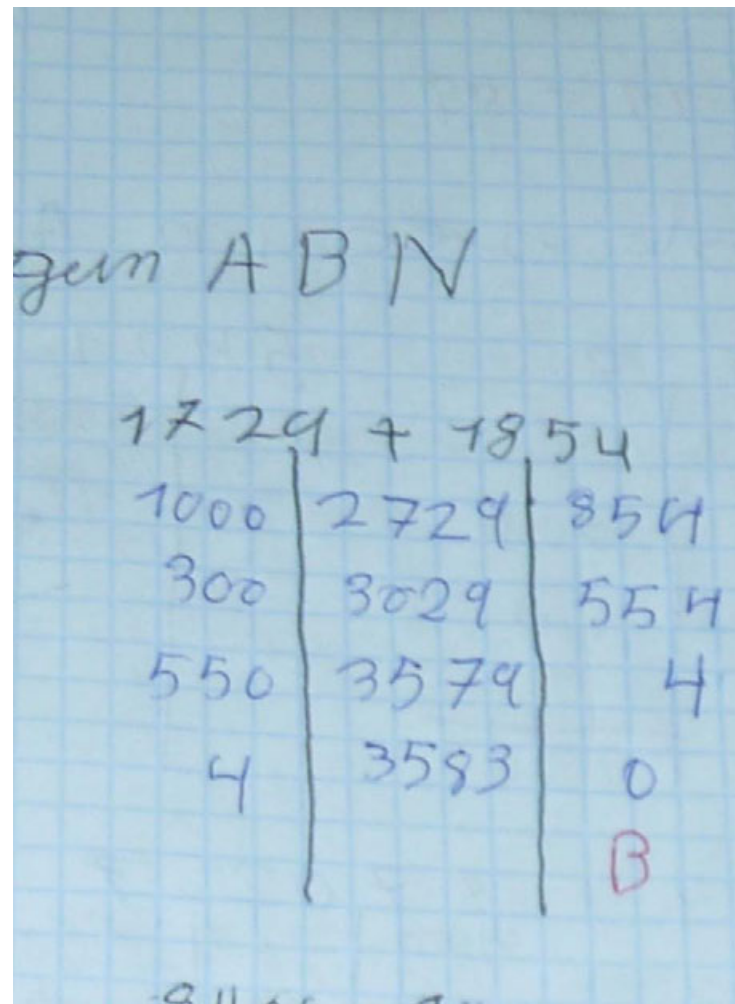 gun A B N
1729 + 1854
1000 2729 854
300 3029 554
550 3579 4
4 3583 0
B